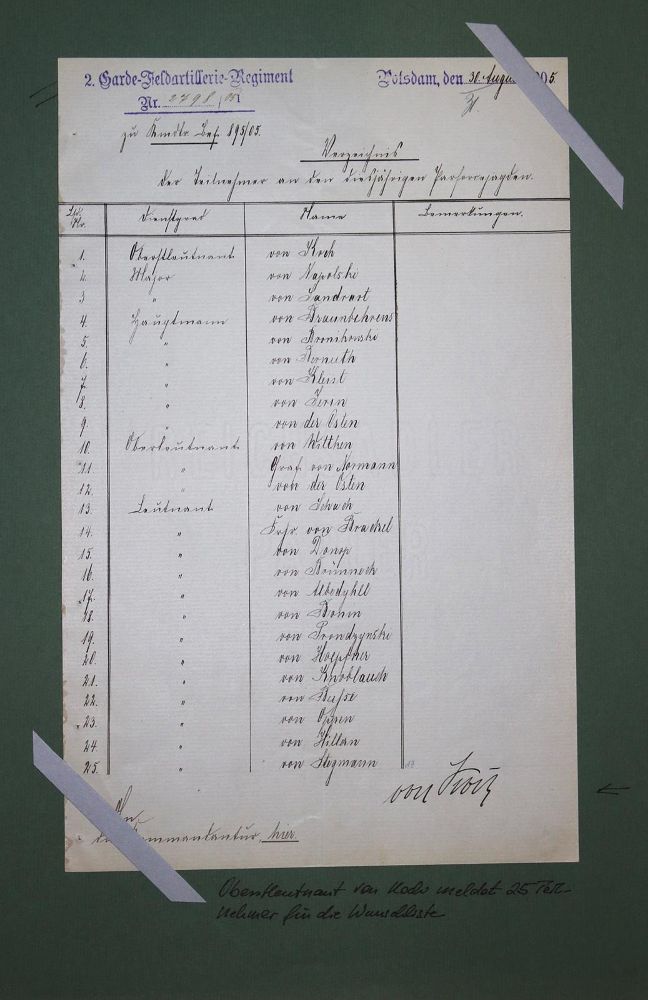 2. Garde-Feldartillerie-Regiment
Potsdam, den 30. August 1905.
Nr. 2798/05
zu Kmdtr. Bef. 195/05.
Verzeichnis
der Teilnehmer an den diesjährigen Parforcejagden.
Lfd. Nr. Dienstgrad Name Bemerkungen.
1. Oberstleutnant von
2. Major von Napolski
3 " von Landwüst
4. Hauptmann von Braunbehrens
5. " von Bronikowski
6. " von Bernuth
7. " von Kleist
8. " von
9. " von der Osten
10. Oberleutnant von Witthen
11. " Graf von Normann
12. " von der Osten
13. Leutnant von Schack
14. " Frhr. von Brackel
15. " von Donop
16. " von Brünneck
17. " von Albedyhll
18. " von
19. " von Prondzynski
20. " von Hoepfner
21. " von Knoblauch
22. " von Busse
23. " von Oppen
24. " von Killan
25. " von Stegmann
von
An
die Kommandantur, hier.
Oberstleutnant von Koch meldet 25 Teil-
nehmer für die Wunschliste